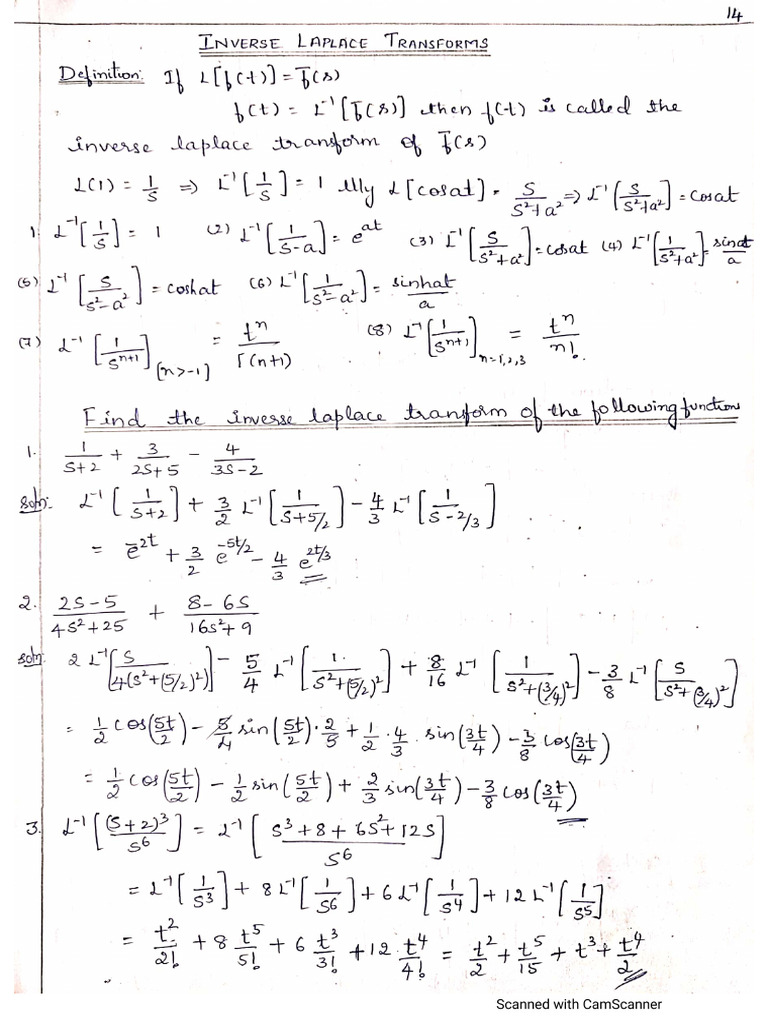 14
INVERSE LAPLACE TRANSFORMS
Definition: If L[f(t)] = f̄(s)
f(t) = L⁻¹[f̄(s)] then f(t) is called the
inverse laplace transform of f̄(s)
L(1) = 1/s ⇒ L⁻¹[1/s] = 1 lllly L[cosat] = s/(s²+a²) ⇒ L⁻¹[s/(s²+a²)] = cosat
1. L⁻¹[1/s] = 1 (2) L⁻¹[1/(s-a)] = e^at (3) L⁻¹[s/(s²+a²)] = cosat (4) L⁻¹[1/(s²+a²)] = sinat/a
(5) L⁻¹[s/(s²-a²)] = coshat (6) L⁻¹[1/(s²-a²)] = sinhat/a
(7) L⁻¹[1/s^(n+1)] [n>-1] = t^n/Γ(n+1) (8) L⁻¹[1/s^(n+1)] n=1,2,3 = t^n/n!
Find the inverse laplace transform of the following function
1. 1/(s+2) + 3/(2s+5) - 4/(3s-2)
Soln: L⁻¹[1/(s+2)] + 3/2 L⁻¹[1/(s+5/2)] - 4/3 L⁻¹[1/(s-2/3)]
= e^-2t + 3/2 e^-5t/2 - 4/3 e^2t/3
2. (2s-5)/(4s²+25) + (8-6s)/(16s²+9)
soln: 2 L⁻¹[s/(4(s²+(5/2)²)] - 5/4 L⁻¹[1/(s²+(5/2)²)] + 8/16 L⁻¹[1/(s²+(3/4)²)] - 3/8 L⁻¹[s/(s²+(3/4)²)]
= 1/2 cos(5t/2) - 5/4 sin(5t/2)·2/5 + 1/2·4/3 . sin(3t/4) - 3/8 cos(3t/4)
= 1/2 cos(5t/2) - 1/2 sin(5t/2) + 2/3 sin(3t/4) - 3/8 cos(3t/4)
3. L⁻¹[(s+2)³/s⁶] = L⁻¹[(s³+8+6s²+12s)/s⁶]
= L⁻¹[1/s³] + 8L⁻¹[1/s⁶] + 6L⁻¹[1/s⁴] + 12L⁻¹[1/s⁵]
= t²/2! + 8 t⁵/5! + 6 t³/3! + 12 . t⁴/4! = t²/2 + t⁵/15 + t³ + t⁴/2
Scanned with CamScanner